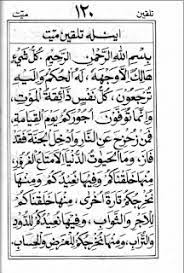 تلقين ١٢٠ ميّت
اينيله تلقين ميّت
بِسْمِ اللهِ الرَّحْمٰنِ الرَّحِيْمِ، كُلُّ شَيْءٍ
هَالِكٌ اِلَّا وَجْهَهُ، لَهُ الْحُكْمُ وَاِلَيْهِ
تُرْجَعُوْنَ، كُلُّ نَفْسٍ ذَآئِقَةُ الْمَوْتِ،
وَاِنَّمَا تُوَفَّوْنَ اُجُوْرَكُمْ يَوْمَ الْقِيَامَةِ،
فَمَنْ زُحْزِحَ عَنِ النَّارِ وَاُدْخِلَ الْجَنَّةَ فَقَدْ
فَازَ، وَمَا الْحَيٰوةُ الدُّنْيَا اِلَّا مَتَاعُ الْغُرُوْرِ،
مِنْهَا خَلَقْنَاكُمْ وَفِيْهَا نُعِيْدُكُمْ وَمِنْهَا
نُخْرِجُكُمْ تَارَةً اُخْرٰى، مِنْهَا خَلَقْنَاكُمْ
لِلْاَجْرِ وَالثَّوَابِ، وَفِيْهَا نُعِيْدُكُمْ لِلدُّوْدِ
وَالتُّرَابِ، وَمِنْهَا نُخْرِجُكُمْ لِلْعَرْضِ وَالْحِسَابِ،